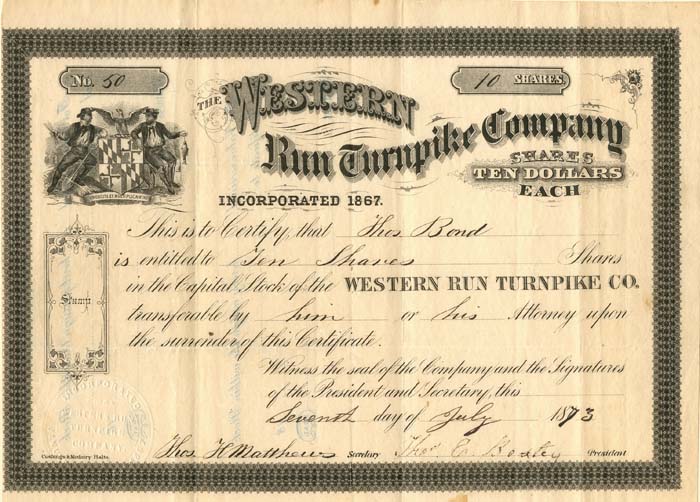 No. 50
10 SHARES
THE WESTERN
Run Turnpike Company
SHARES
TEN DOLLARS
EACH
INCORPORATED 1867.
This is to Certify, that Thos Bond
is entitled to Ten Shares Shares
in the Capital Stock of the WESTERN RUN TURNPIKE CO.
transferable by him or his Attorney upon
the surrender of this Certificate.
Stamp
Witness the seal of the Company and the Signatures
of the President and Secretary, this
Seventh day of July 1873
Thos H Matthews Secretary Thos President